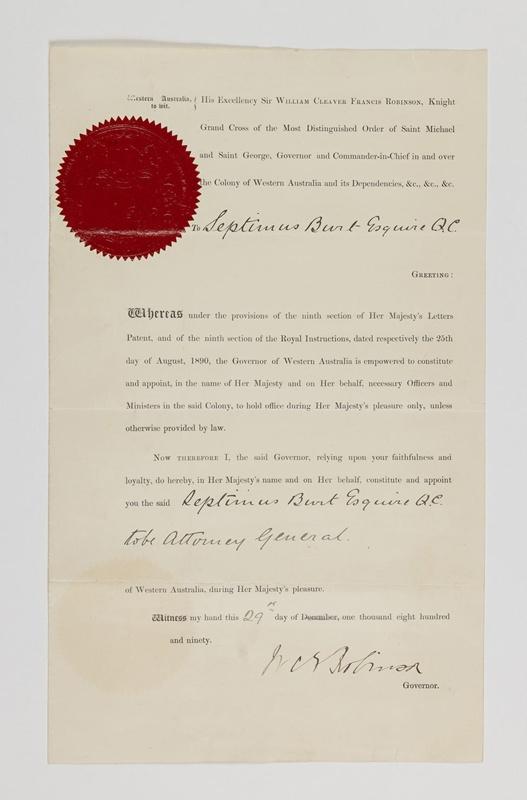 Western Australia, } His Excellency Sir William Cleaver Francis Robinson, Knight
to wit. }
Grand Cross of the Most Distinguished Order of Saint Michael
and Saint George, Governor and Commander-in-Chief in and over
the Colony of Western Australia and its Dependencies, &c., &c., &c.
To Septimus Burt Esquire Q.C.
Greeting:
Whereas under the provisions of the ninth section of Her Majesty's Letters
Patent, and of the ninth section of the Royal Instructions, dated respectively the 25th
day of August, 1890, the Governor of Western Australia is empowered to constitute
and appoint, in the name of Her Majesty and on Her behalf, necessary Officers and
Ministers in the said Colony, to hold office during Her Majesty's pleasure only, unless
otherwise provided by law.
Now therefore I, the said Governor, relying upon your faithfulness and
loyalty, do hereby, in Her Majesty's name and on Her behalf, constitute and appoint
you the said Septimus Burt Esquire Q.C.
to be Attorney General.
of Western Australia, during Her Majesty's pleasure.
Witness my hand this 29th day of December, one thousand eight hundred
and ninety.
W C F Robinson
Governor.